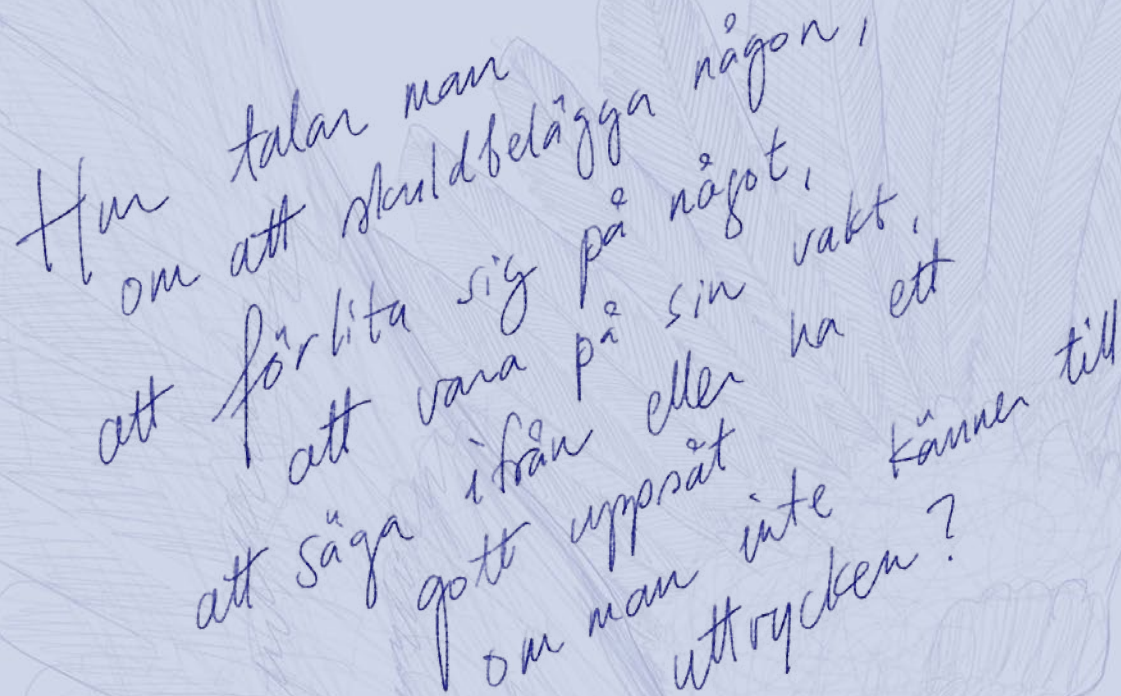 Hur talar man
om att skuldbelägga någon,
att förlita sig på något,
att vara på sin vakt,
att säga ifrån eller ha ett
gott uppsåt
om man inte känner till
uttrycken?